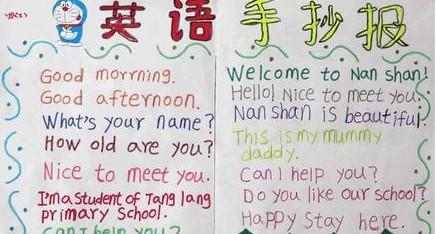 英语手抄报
Good morrning.
Good afternoon.
What's your name?
How old are you?
Nice to meet you.
I'm a student of Tang lang
primary School.
Can I help you?
Welcome to Nan shan!
Hello! Nice to meet you.
Nan shan is beautiful.
This is my mummy
daddy.
Can I help you?
Do you like our school?
Happy Stay here.